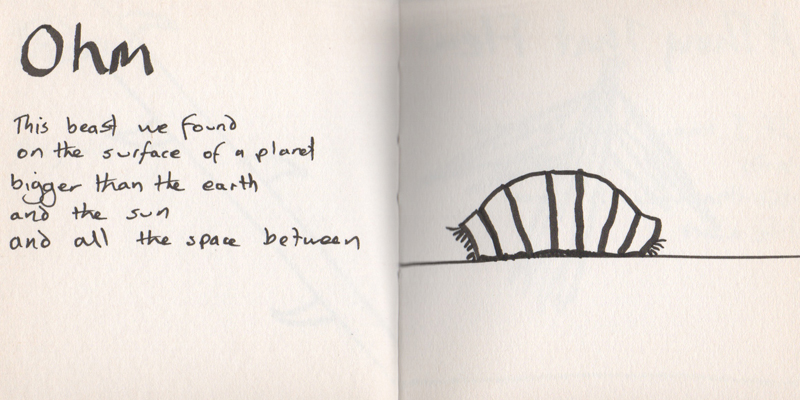 Ohm
This beast we found
on the surface of a planet
bigger than the earth
and the sun
and all the space between